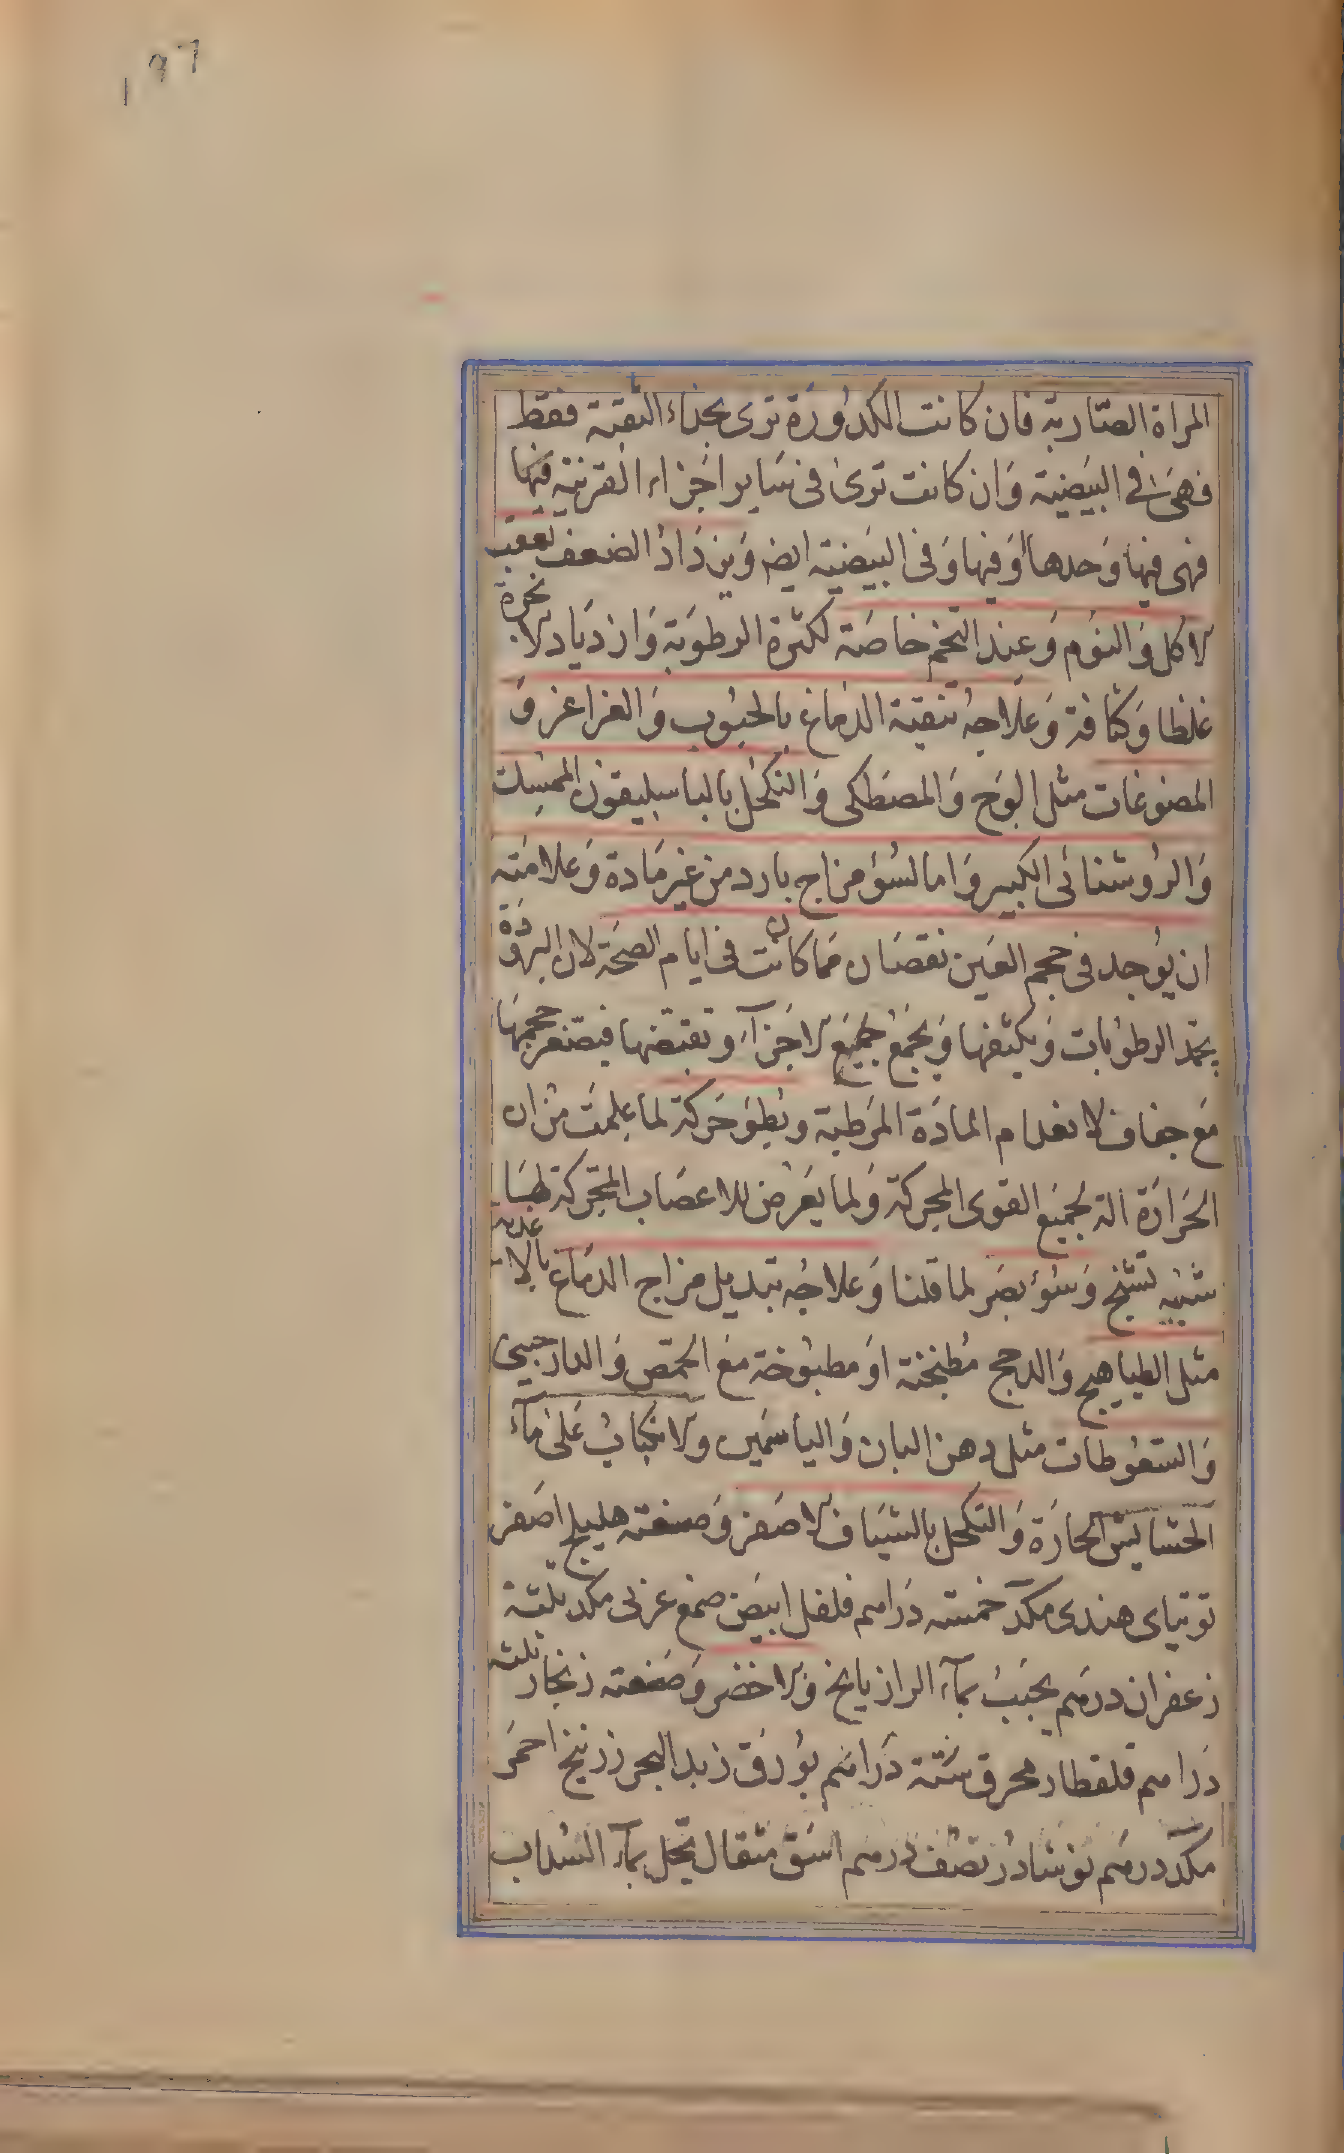 ١٩٦
المراة الصّدرية فان كانت الكدورة ترى بحذاء الثقبة فقط
فهى فى البيضية وان كانت ترى فى ساير اجزاء القرنية فيها
فهى فيها وحدها او فيها وفى البيضية ايضا ويزداد الضعف بعقب
الاكل والنوم وعند التخم خاصة لكثرة الرطوبة وازدياد الابخرة
غلظا وكثافة وعلاجه تنقية الدماغ بالحبوب والغراغر و
المضوغات مثل الوج والمصطكى والتكحل بالباسليقون الممسك
والروشنائى الكبير واما لسوء مزاج بارد من غير مادة وعلامته
ان يوجد فى حجم العين نقصان مما كانت فى ايام الصحة لان البرودة
يجمد الرطوبات ويكثفها ويجمع جميع الاجزآء وتقبضها فيصغر حجمها
مع جفاف لانعدام المادة المرطبة وبطوء حركة لما علمت من ان
الحرارة الة لجميع القوى المحركة ولما يعرض للاعصاب المحركة لها
شبيه تشنج وسوء بصر لما قلنا وعلاجه تبديل مزاج الدماغ بالاغذية
مثل الطياهيج والدجج مطبخنة او مطبوخة مع الحمص والدارچينى
والسعوطات مثل دهن البان والياسمين والانكباب على مآء
الحشايش الحارة والتكحل بالشياف الاصفر وصنعته هليلج اصفر
توتياى هندى مكد خمسة دراهم فلفل ابيض صمغ عربى مكد ثلثة
زعفران درهم يحبب بمآء الرازيانج والاخضر وصنعته زنجار ثلثة
دراهم قلقطار محرق ستة دراهم بورق زبد البحر زرنيخ احمر
مكد درهم نوشادر نصف درهم اشق مثقال يحل بمآء السداب